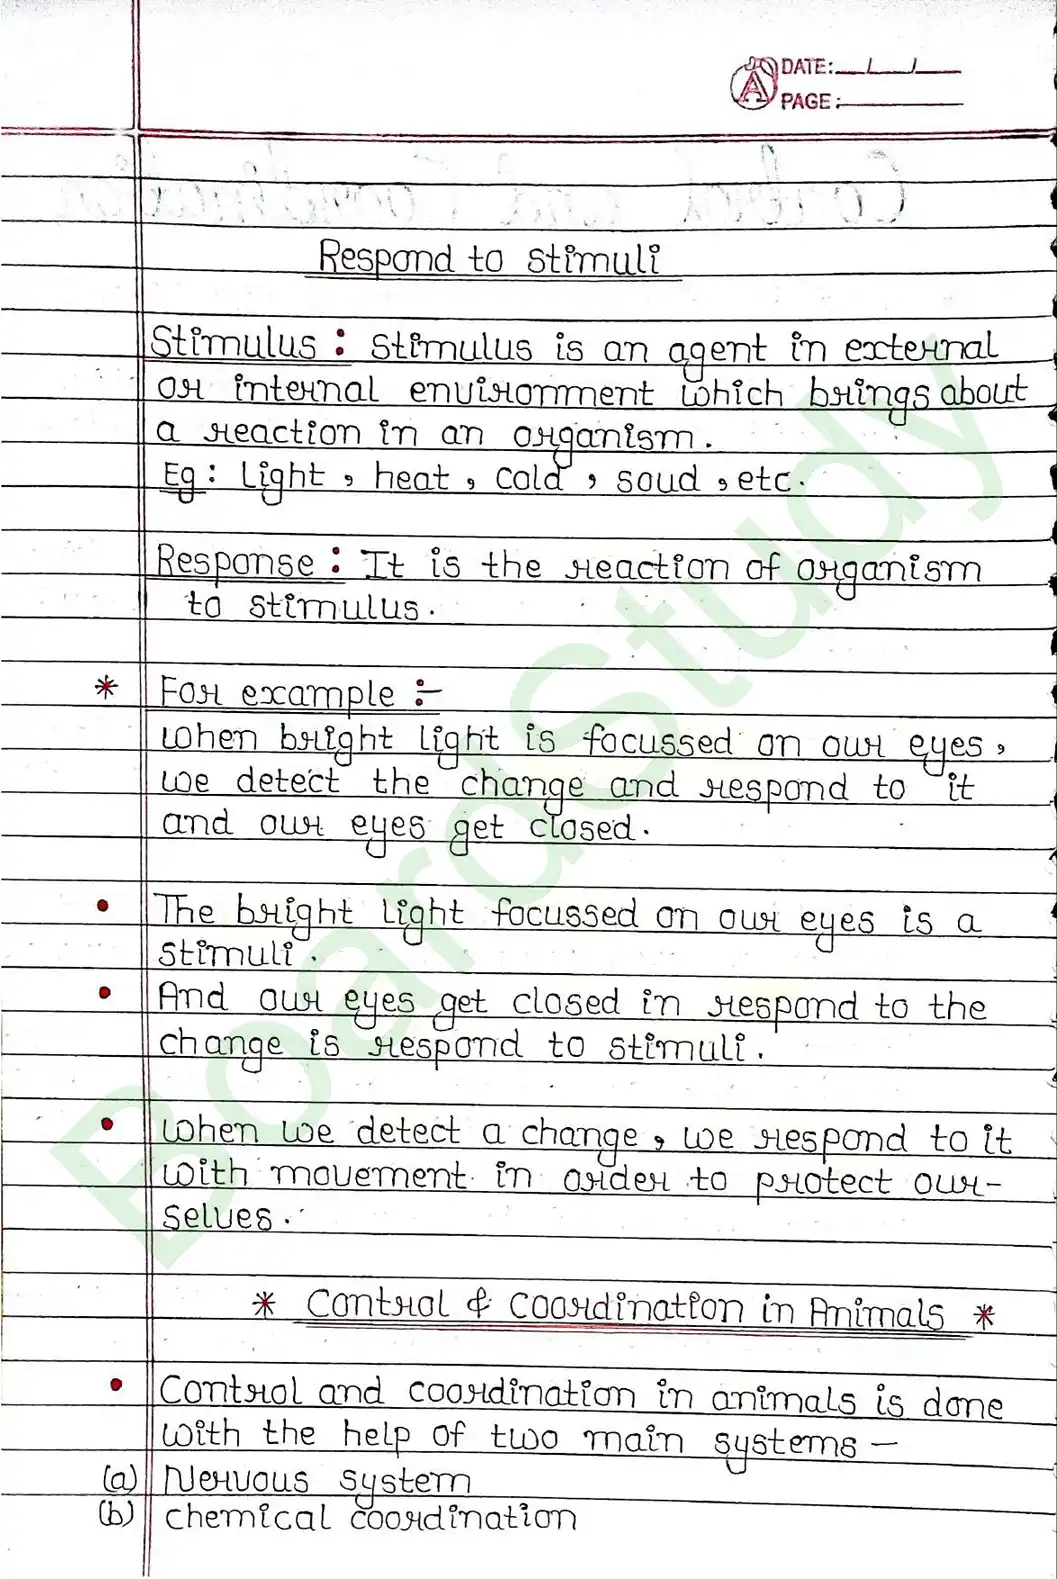 DATE: __/__/__
PAGE:
Respond to stimuli
Stimulus : Stimulus is an agent in external
or internal environment which brings about
a reaction in an organism.
Eg : Light , heat , cold , soud , etc.
Response : It is the reaction of organism
to stimulus.
* For example :-
When bright light is focussed on our eyes,
we detect the change and respond to it
and our eyes get closed.
• The bright light focussed on our eyes is a
stimuli.
• And our eyes get closed in respond to the
change is respond to stimuli.
• When we detect a change, we respond to it
with movement in order to protect our-
selves.
* Control & Coordination in Animals *
• Control and coordination in animals is done
with the help of two main systems –
(a) Nervous system
(b) chemical coordination
BoardStudy